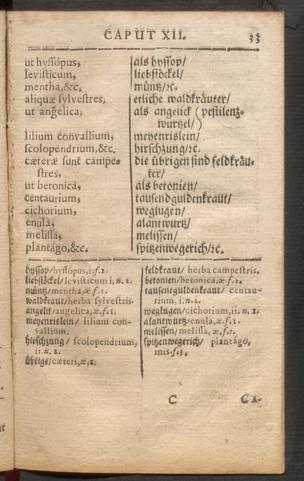 CAPUT XII. 33
ut hyssôpus,
levisticum,
mentha, &c.
aliquæ sylvestres,
ut angelica,
lilium convallium,
scolopendrium, &c.
cæteræ sunt campe-
stres,
ut betonica,
centaurium,
cichorium,
enula,
melissa,
plantágo, &c.
als hyssop/
liebstöckel/
müntz/ꝛc.
etliche waldkräuter/
als angelick (pestilentz-
wurtzel/)
meyenrislein/
hirschzung/ꝛc.
die übrigen sind feldkräu-
ter/
als betonien/
tausendguldenkraut/
weglugen/
alantwurtz/
melissen/
spitzenwegerich/ꝛc.
hyssop/hyssôpus, i: f. 2.
liebstöckel/levisticum i, n. 2.
müntz/mentha, æ f. 1.
waldkraut/herba sylvestris.
angelik/angelica, æ f. 1.
meyenrislein/ lilium con-
vallium.
hirschzung/ scolopendrium,
ii. n. 2.
übrige/cæteri, æ, a.
feldkraut/ herba campestris.
betonien/betonica, æ f. 1.
tausentguldenkraut/ centau-
rium, i. n. 2.
weglugen/cichorium, ii. n. 2.
alantwurtz/enula, æ. f. 1.
melissen/melissa, æ. f. 1.
spitzenwegerich/ plantágo,
inis. f. 3.
C C 2.